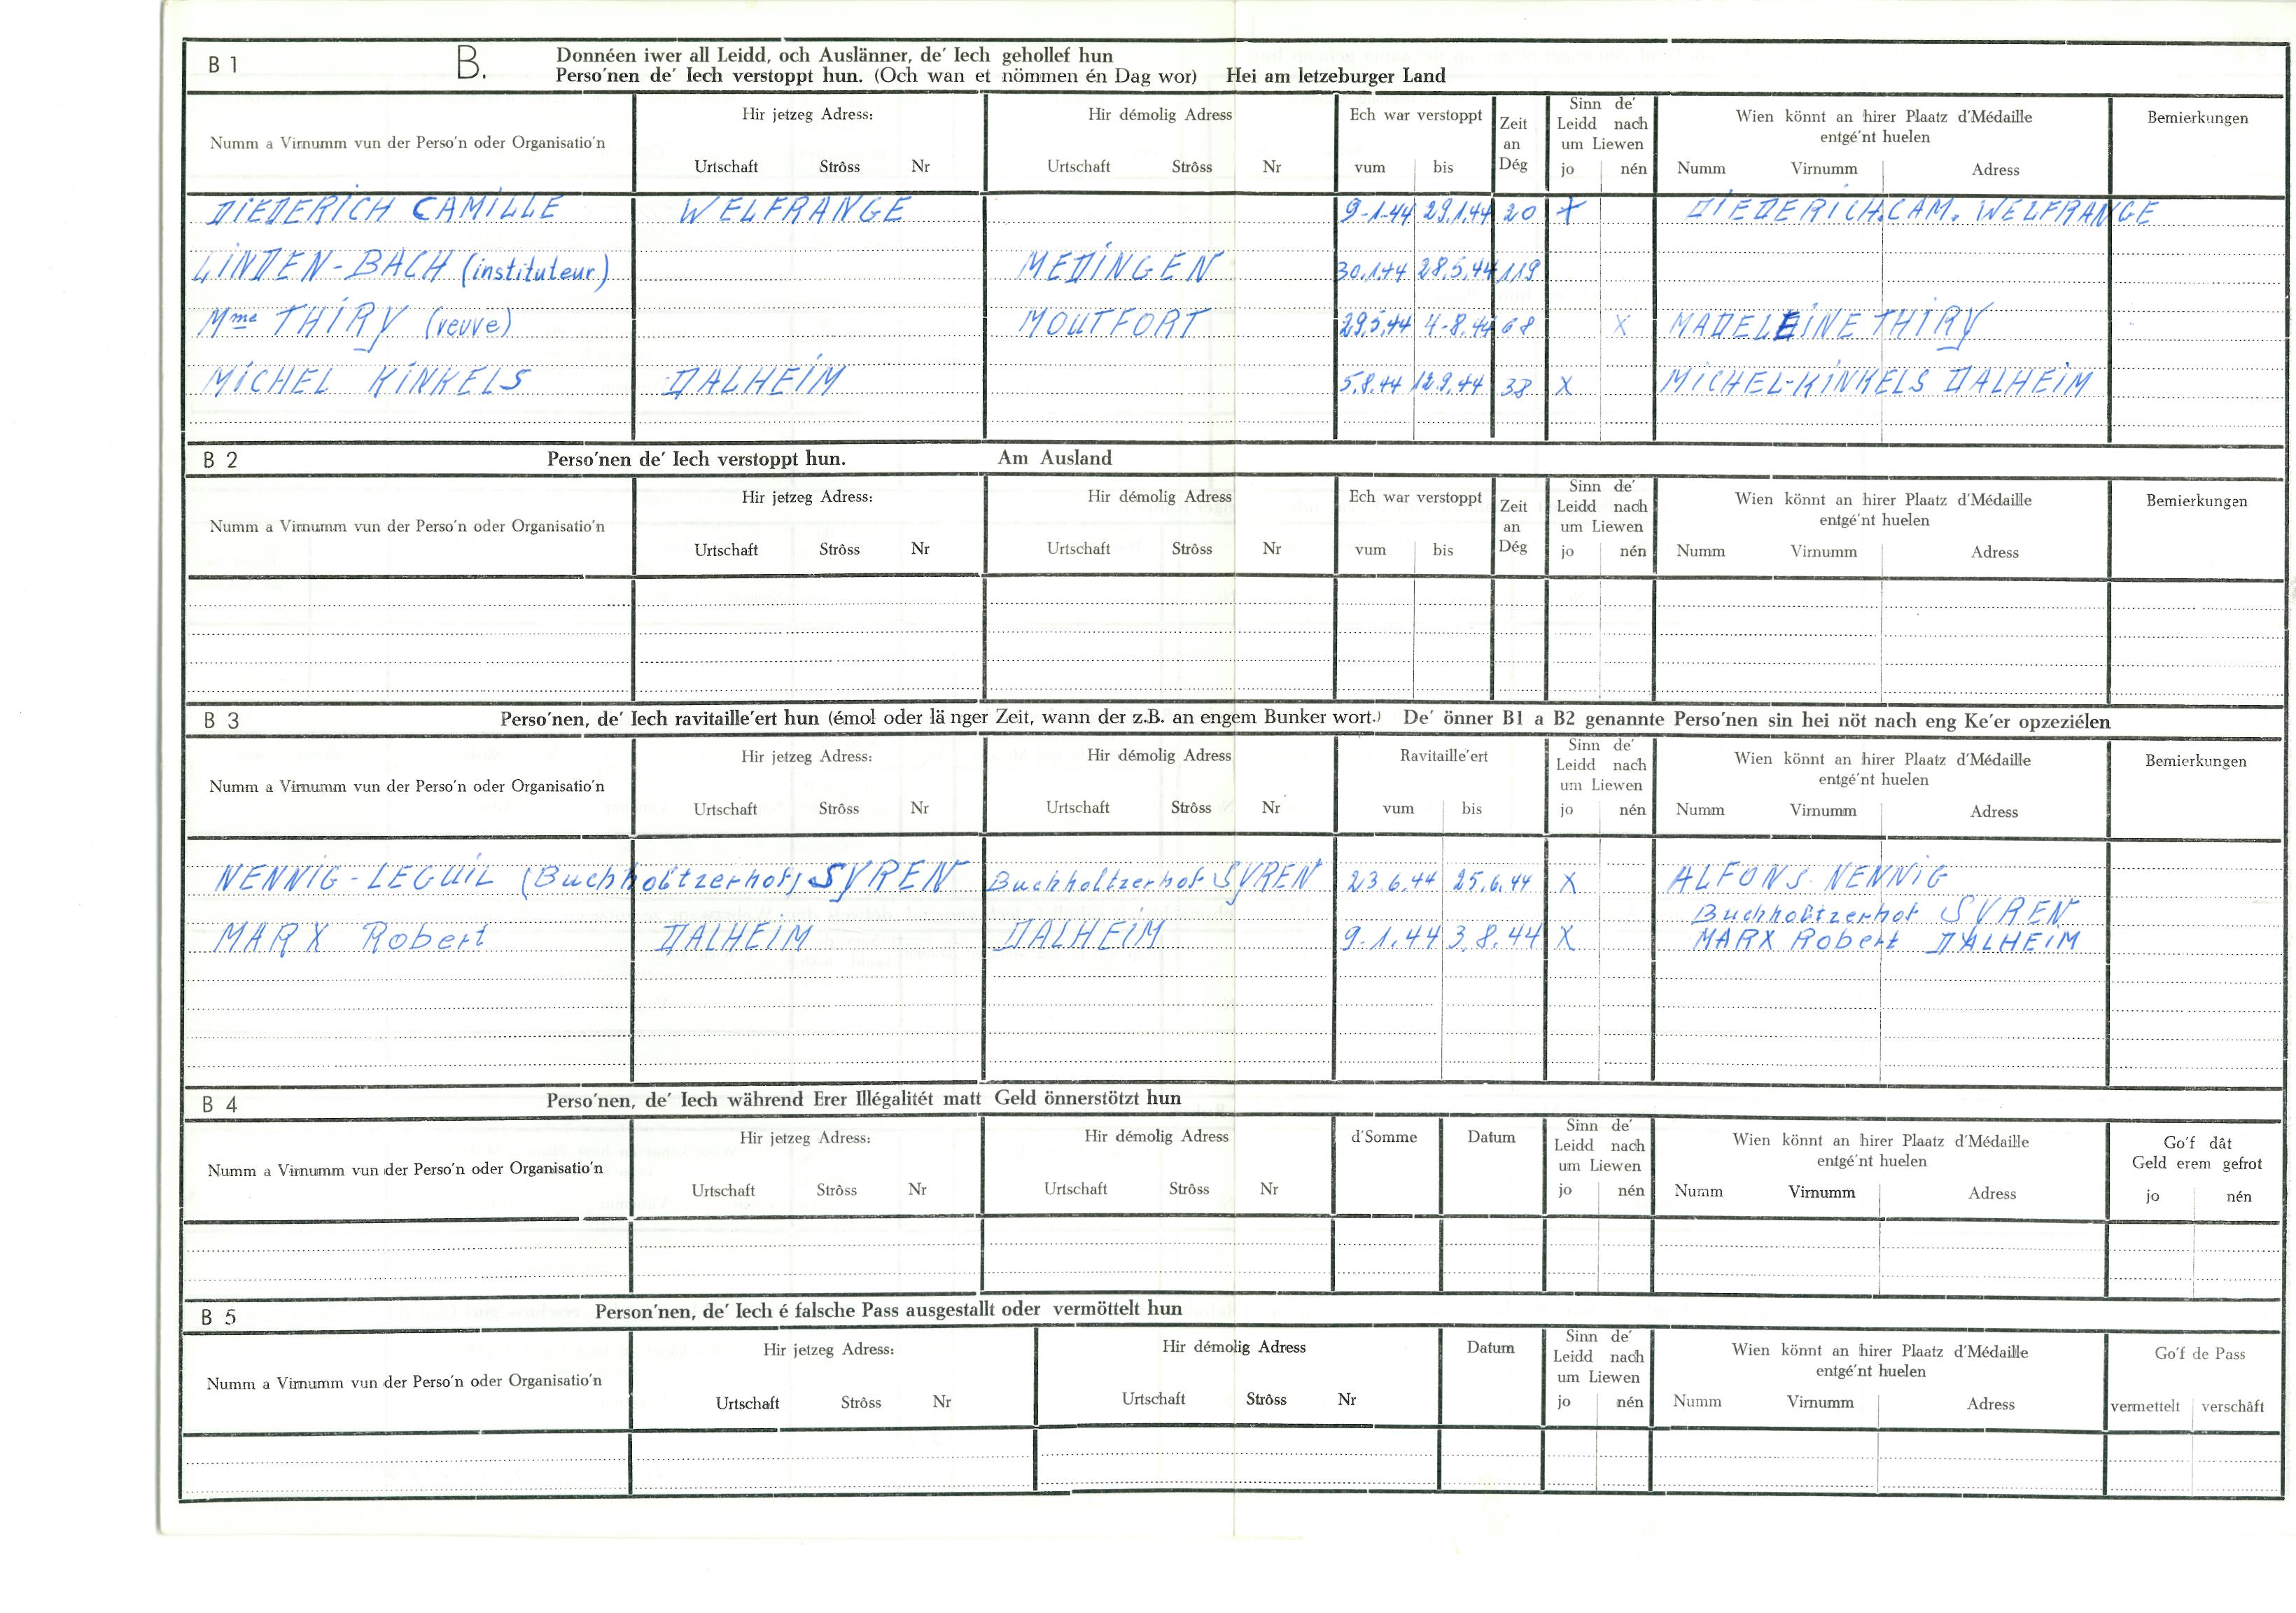 B 1 B. Donnéen iwer all Leidd, och Auslänner, de' Iech gehollef hun
Perso'nen de' Iech verstoppt hun. (Och wan et nömmen én Dag wor) Hei am letzeburger Land
Numm a Virnumm vun der Perso'n oder Organisatio'n
Hir jetzeg Adress:
Urtschaft Strôss Nr
Hir démolig Adress
Urtschaft Strôss Nr
Ech war verstoppt
vum bis
Zeit
an
Dég
Sinn de'
Leidd nach
um Liewen
jo nén
Wien könnt an hirer Plaatz d'Médaille
entgé'nt huelen
Numm Virnumm Adress
Bemierkungen
DIEDERICH CAMILLE WELFRANGE 9-1-44 29.1.44 20 X DIEDERICH.CAM. WELFRANGE
LINDEN-BACH (instituteur) MEDINGEN 30.1.44 28.5.44 119
Mme THIRY (veuve) MOUTFORT 29.5.44 4-8.44 68 X MADELEINE THIRY
MICHEL KINKELS DALHEIM 5.8.44 12.9.44 38 X MICHEL-KINKELS DALHEIM
B 2 Perso'nen de' Iech verstoppt hun. Am Ausland
Numm a Virnumm vun der Perso'n oder Organisatio'n
Hir jetzeg Adress:
Urtschaft Strôss Nr
Hir démolig Adress
Urtschaft Strôss Nr
Ech war verstoppt
vum bis
Zeit
an
Dég
Sinn de'
Leidd nach
um Liewen
jo nén
Wien könnt an hirer Plaatz d'Médaille
entgé'nt huelen
Numm Virnumm Adress
Bemierkungen
B 3 Perso'nen, de' Iech ravitaille'ert hun (émol oder lä nger Zeit, wann der z.B. an engem Bunker wort.) De' önner B1 a B2 genannte Perso'nen sin hei nöt nach eng Ke'er opzeziélen
Numm a Virnumm vun der Perso'n oder Organisatio'n
Hir jetzeg Adress:
Urtschaft Strôss Nr
Hir démolig Adress
Urtschaft Strôss Nr
Ravitaille'ert
vum bis
Sinn de'
Leidd nach
um Liewen
jo nén
Wien könnt an hirer Plaatz d'Médaille
entgé'nt huelen
Numm Virnumm Adress
Bemierkungen
NENNIG-LEGUIL (Buchholtzerhof) SYREN Buchholtzerhof SYREN 23.6.44 25.6.44 X ALFONS NENNIG
Buchholtzerhof SYREN
MARX Robert DALHEIM DALHEIM 9.1.44 3.8.44 X MARX Robert DALHEIM
B 4 Perso'nen, de' Iech während Erer Illégalitét matt Geld önnerstötzt hun
Numm a Virnumm vun der Perso'n oder Organisatio'n
Hir jetzeg Adress:
Urtschaft Strôss Nr
Hir démolig Adress
Urtschaft Strôss Nr
d'Somme
Datum
Sinn de'
Leidd nach
um Liewen
jo nén
Wien könnt an hirer Plaatz d'Médaille
entgé'nt huelen
Numm Virnumm Adress
Go'f dât
Geld erem gefrot
jo nén
B 5 Person'nen, de' Iech é falsche Pass ausgestallt oder vermöttelt hun
Numm a Virnumm vun der Perso'n oder Organisatio'n
Hir jetzeg Adress:
Urtschaft Strôss Nr
Hir démolig Adress
Urtschaft Strôss Nr
Datum
Sinn de'
Leidd nach
um Liewen
jo nén
Wien könnt an hirer Plaatz d'Médaille
entgé'nt huelen
Numm Virnumm Adress
Go'f de Pass
vermettelt verschâft